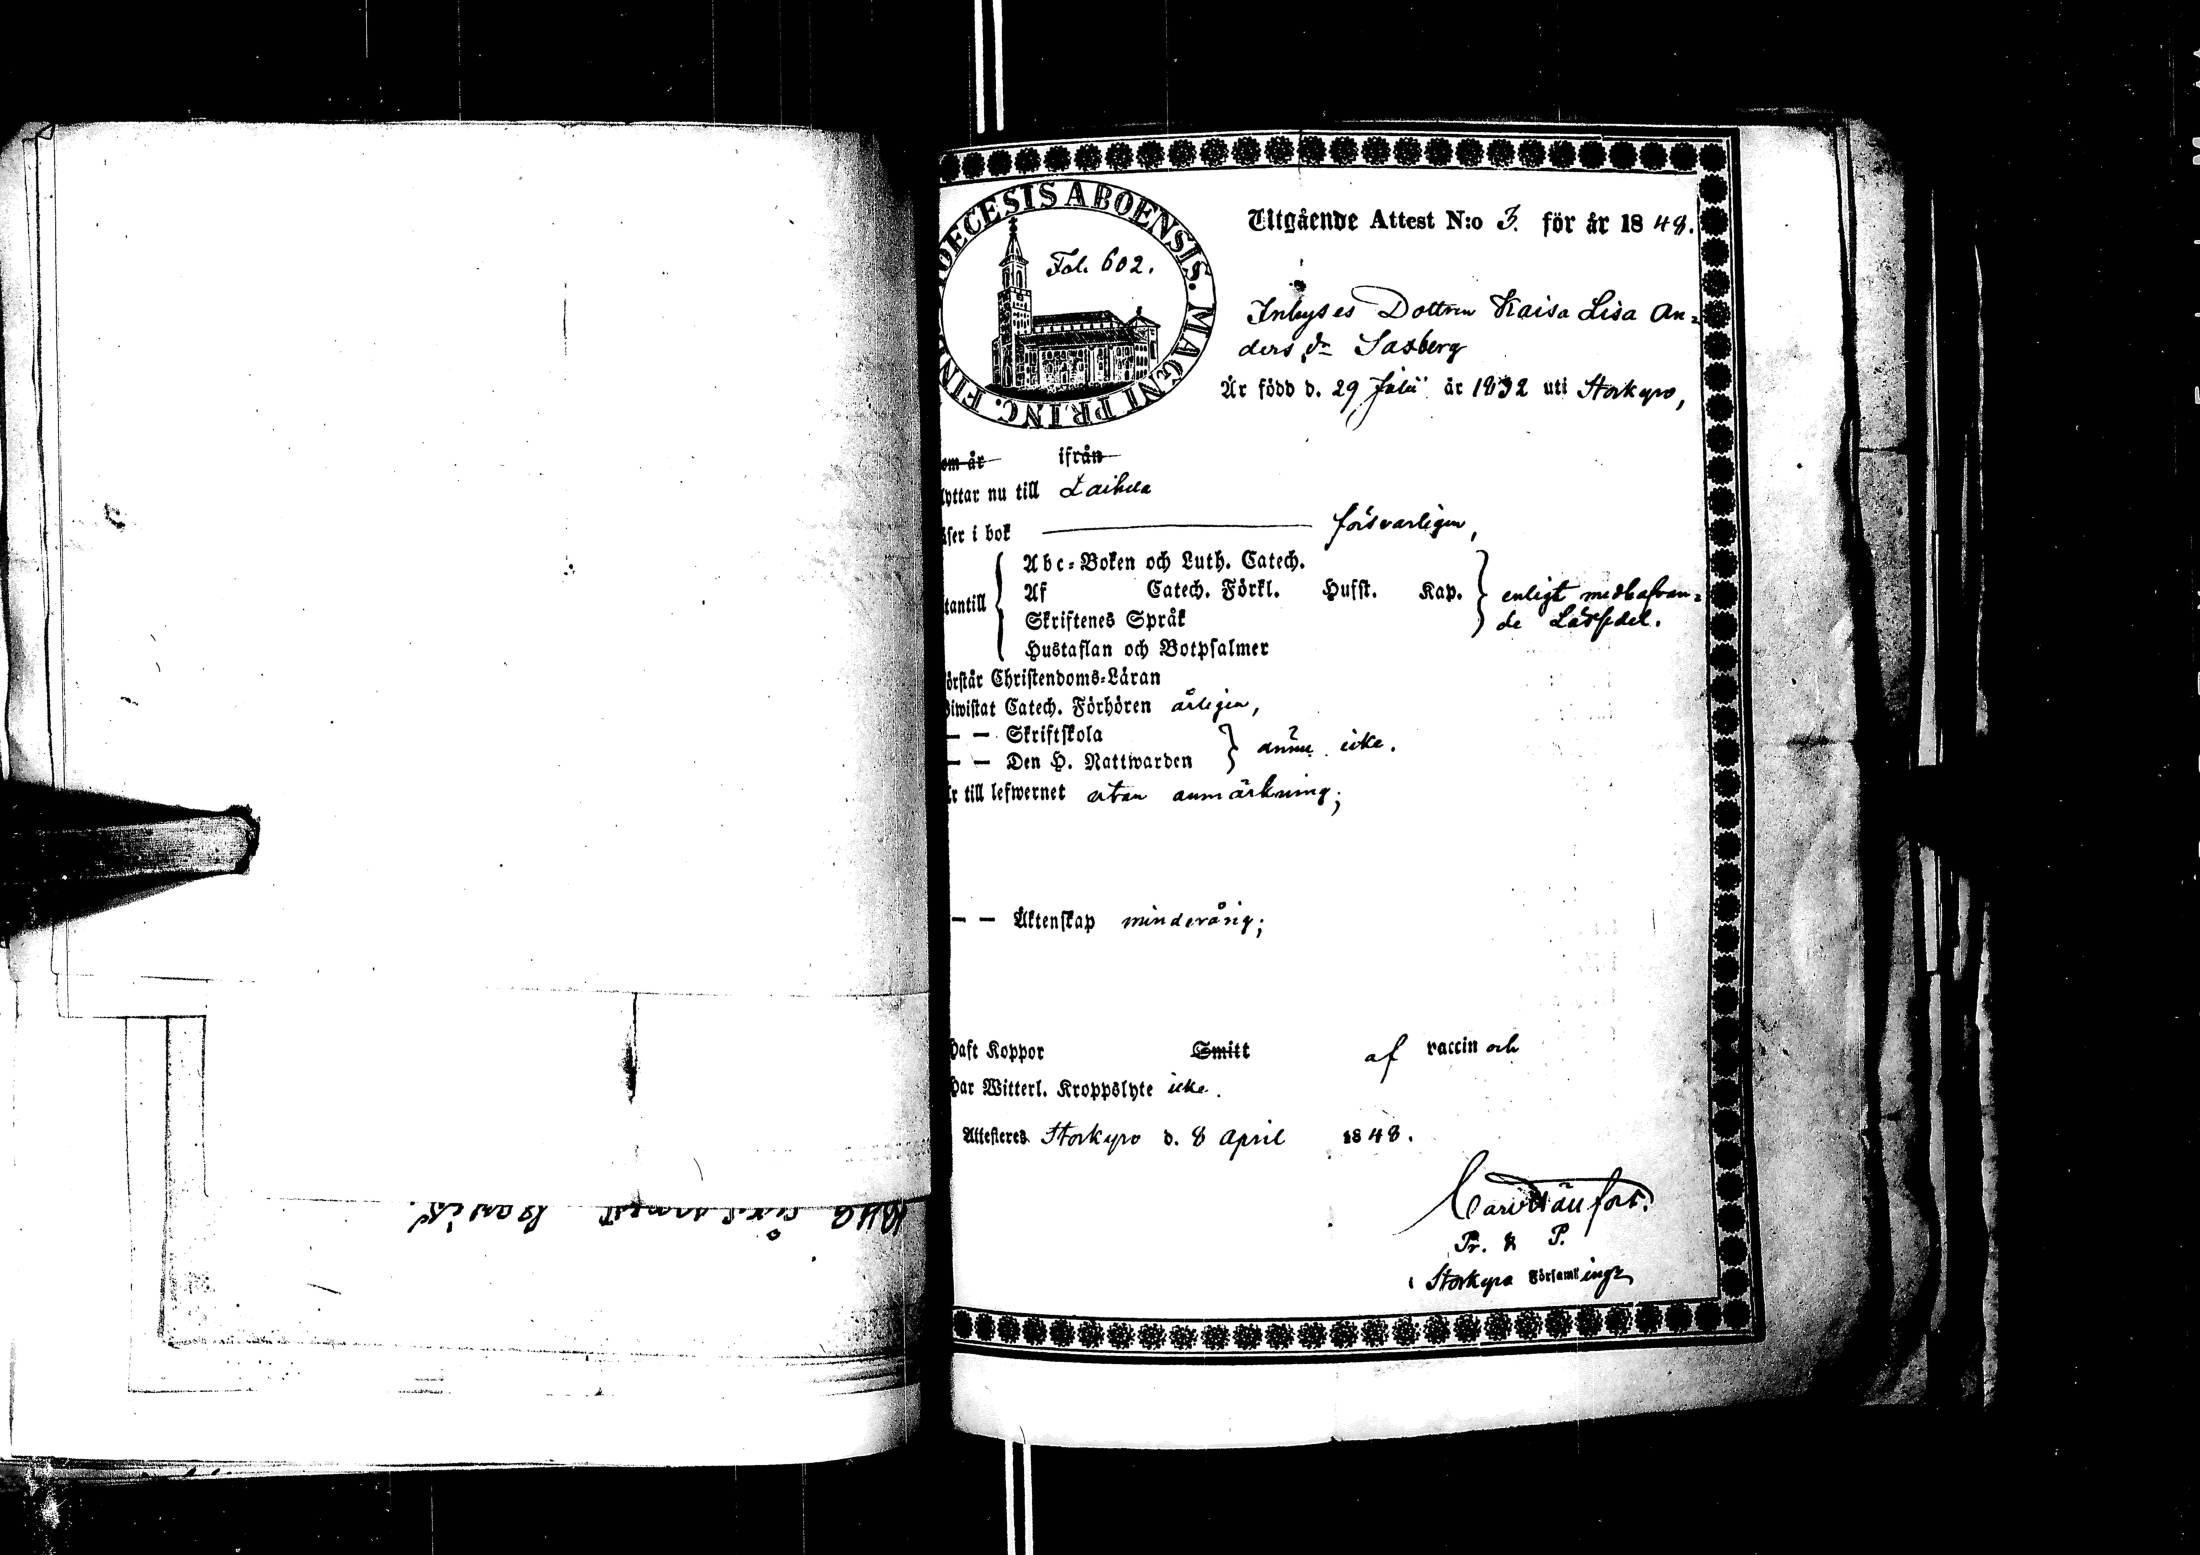 DIOECESIS ABOENSIS. MAGNI PRINC. FINL
Fol. 602.
Utgående Attest N:o 3. för år 1848.
Inhyses Dottren Kaisa Lisa An=
ders dr Saxberg
Är född d. 29 Julii år 1832 uti Storkyro,
om år ifrån
lyttar nu till Laihela
äser i bok försvarligen,
tantill
Abc=Boken och Luth. Catech.
Af Catech. Förkl. Husst. Kap. enligt medhafvan=
Skriftenes Språk de Lässedel.
Hustaflan och Botpsalmer
örstår Christendoms=Läran
Biwistat Catech. Förhören årligen,
— — Skriftskola
— — Den H. Nattwarden ännu icke.
är till lefwernet utan anmärkning;
— — Äktenskap minderårig;
Haft Koppor Smitt af vaccin och
Har Witterl. Kroppslyte icke.
Attesteras Storkyro d. 8 April 1848.
Pr. & P.
i Storkyro Församlings